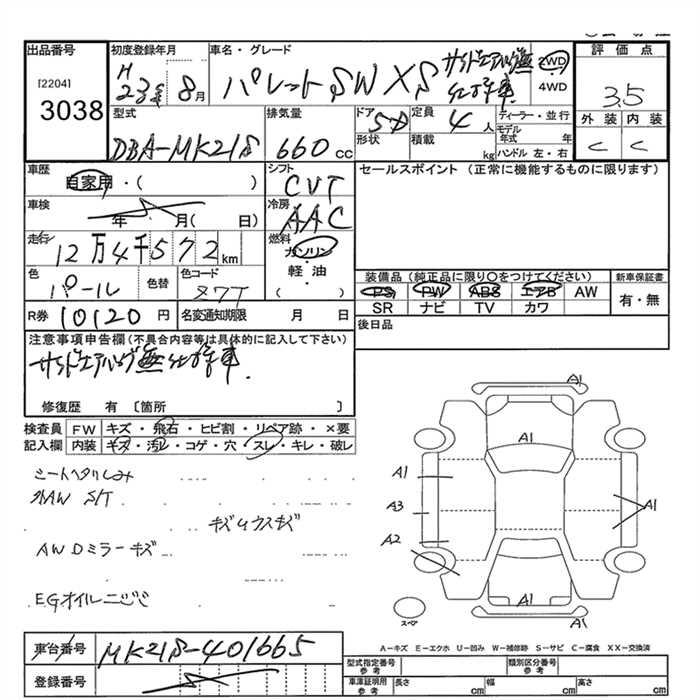 出品番号
[2204]
3038
初度登録年月
H 23年 8月
車名・グレード
パレットSW XS サイドエアバッグ無 仕様車
2WD
4WD
評価点
3.5
外装 内装
C C
型式
DBA-MK21S
排気量
660 cc
ドア 形状
5D
定員 4 人
積載 kg
ディーラー・並行
モデル年式 年
ハンドル 左・右
車歴
自家用・( )
シフト
CVT
セールスポイント (正常に機能するものに限ります)
車検
年 月( 日)
冷房
AAC
走行
12万4千572km
燃料
ガソリン
軽・油
( )
色
パール
色替
色コード
R券 10120 円
名変通知期限 月 日
装備品 (純正品に限り○をつけてください)
新車保証書
PS PW ABS エアB AW
SR ナビ TV カワ
有・無
後日品
注意事項申告欄(不具合内容等は具体的に記入して下さい)
サイドエアバッグ無仕様車
修復歴 有 〔箇所 〕
検査員 FW キズ・飛石・ヒビ割・リペア跡・×要
記入欄 内装 キズ・汚レ・コゲ・穴・スレ・キレ・破レ
シートヘタリしみ
外AW S/T
キズ小ウスキズ
AWDミラーキズ
EGオイルニジミ
A1
A1
A1
A3
A1
A2
A1
A1
スペア
A-キズ E-エクボ U-凹み W-補修跡 S-サビ C-腐食 XX-交換済
車台番号 MK21S-401665
登録番号
型式指定番号 参考
類別区分番号 参考
車庫証明用 参考 長さ cm 幅 cm 高さ cm